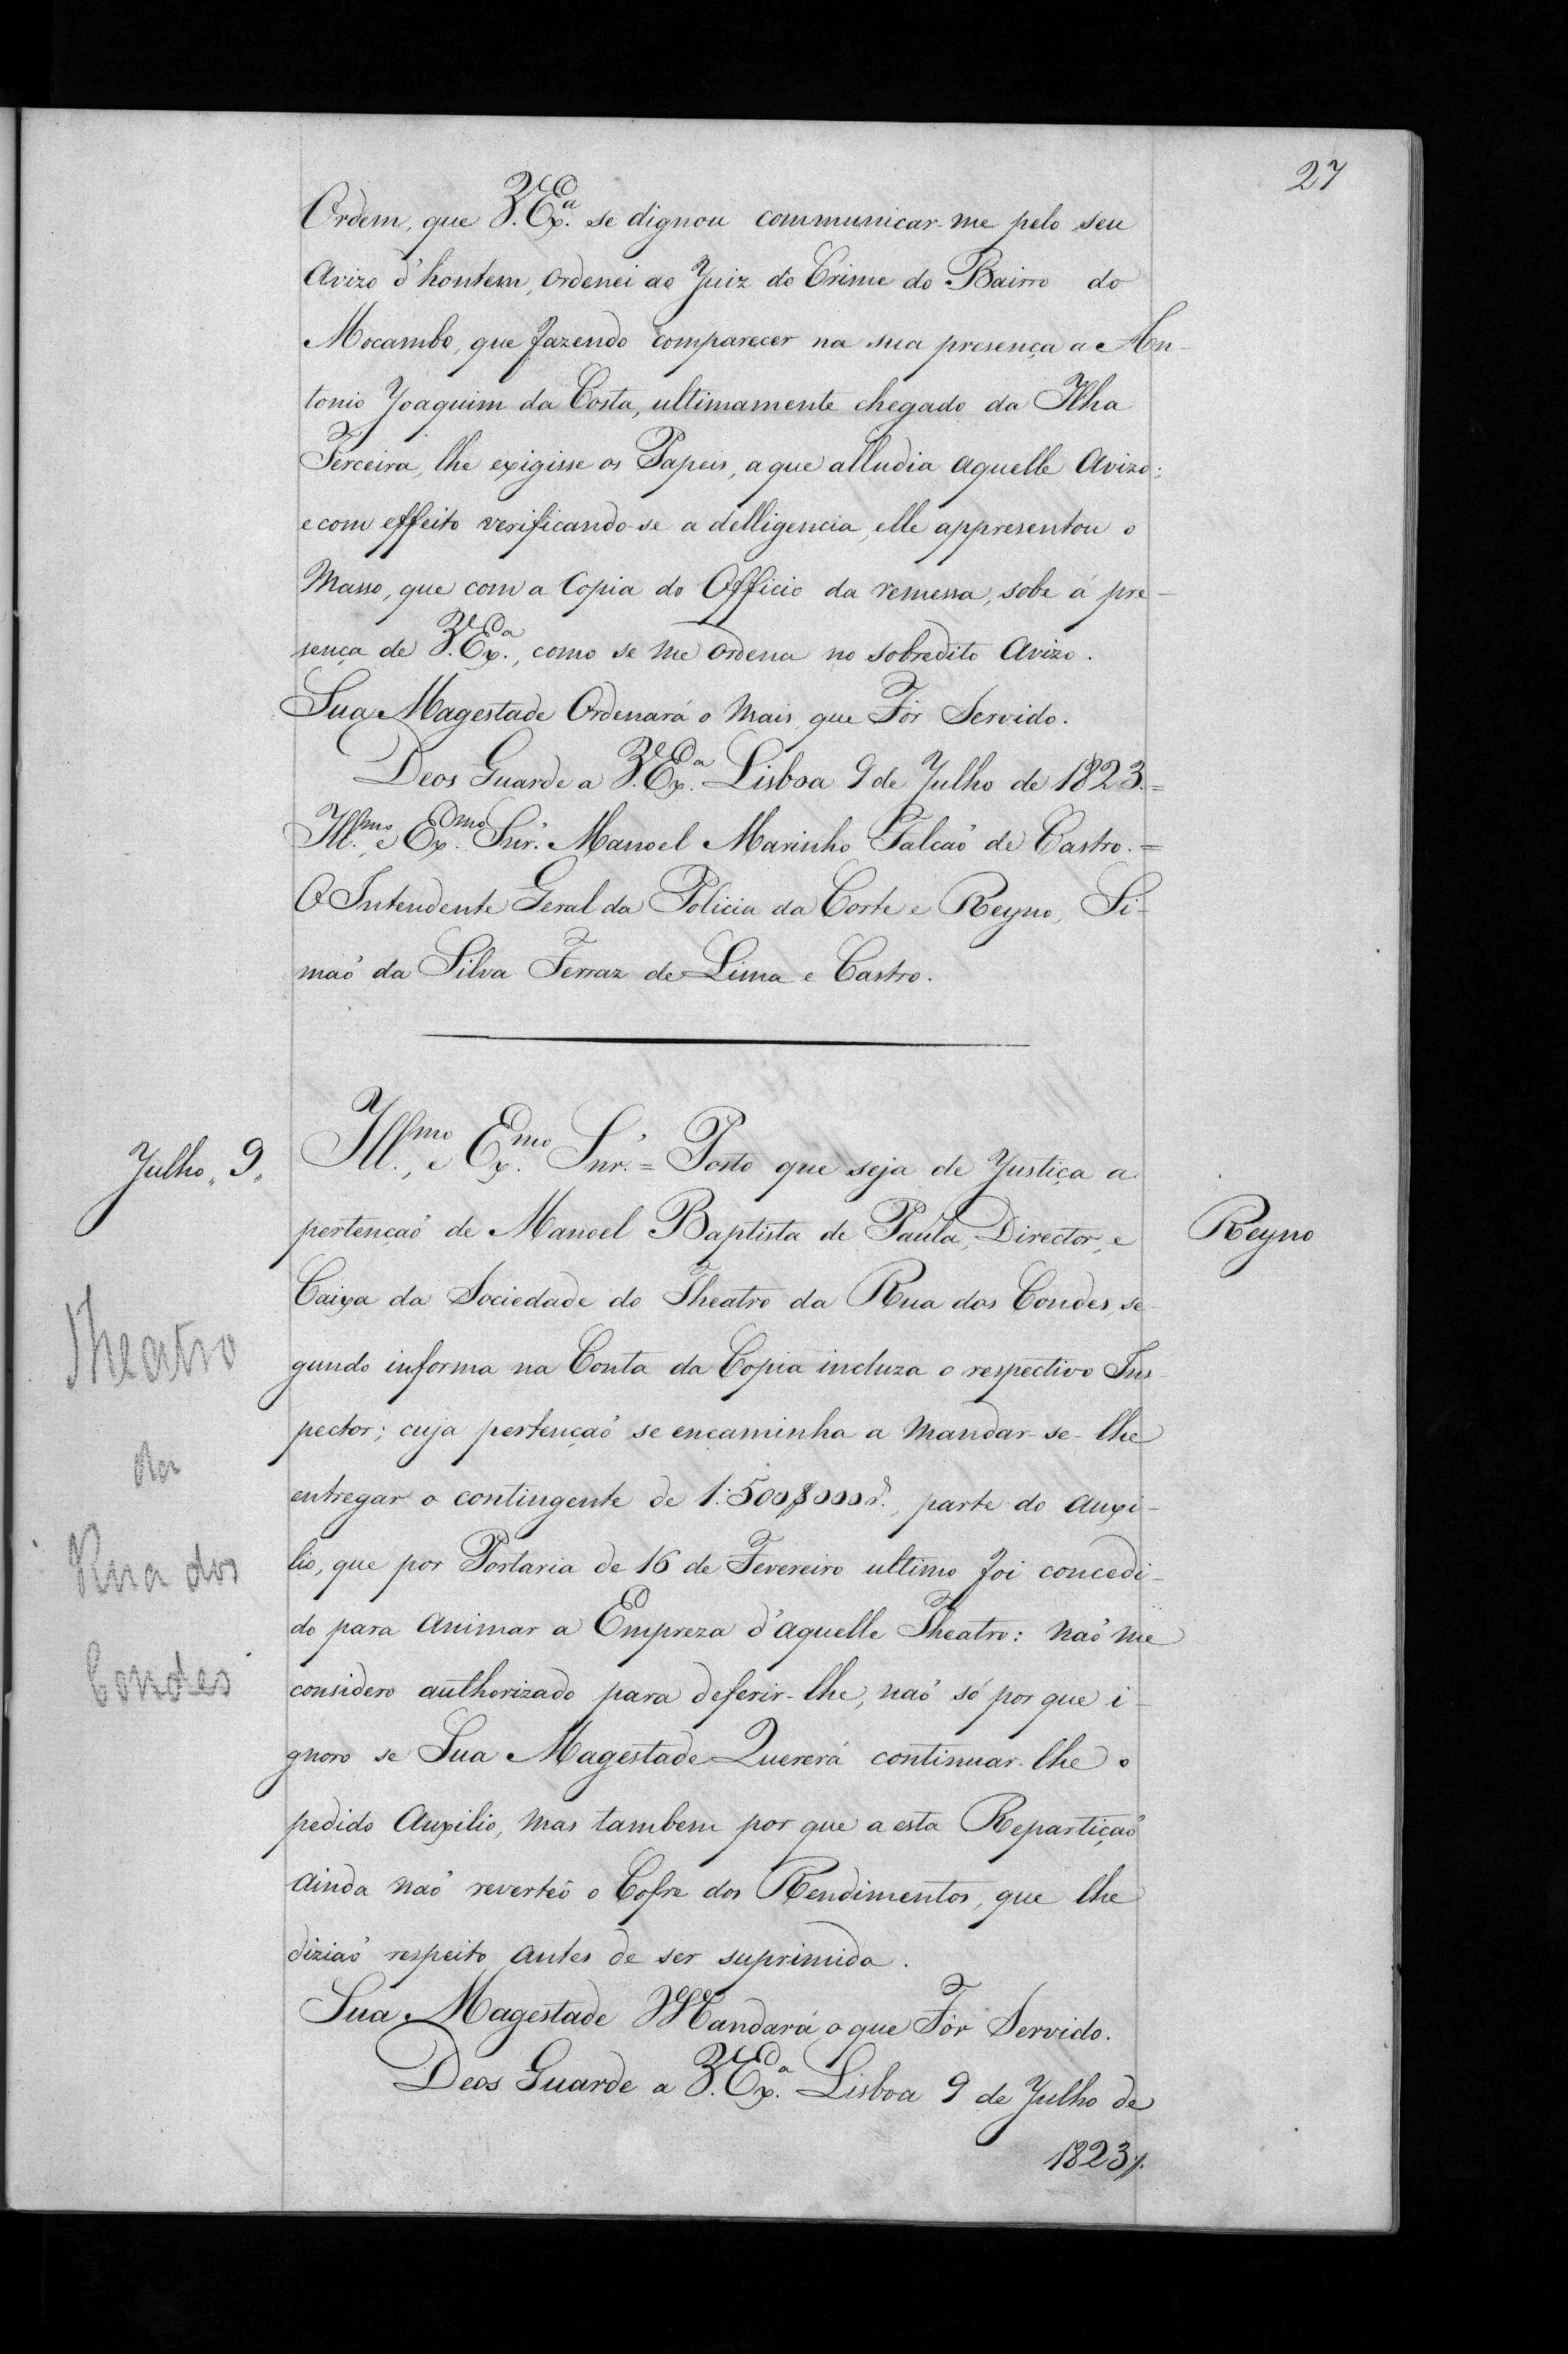 27
Ordem, que V. Ex.ª se dignou communicar-me pelo seu
Avizo d'hontem, ordenei ao Juiz do Crime do Bairro do
Mocambo, que fazendo comparecer na sua presença a An-
tonio Joaquim da Costa, ultimamente chegado da Ilha
Terceira, lhe exigisse os Papeis, a que alludia aquelle Avizo;
e com effeito verificando-se a delligencia, elle appresentou o
Masso, que com a Copia do Officio da remessa, sobe á pre-
sença de V. Ex.ª, como se me ordena no sobredito Avizo.
Sua Magestade Ordenará o mais que Fôr Servido.
Deos Guarde a V. Ex.ª Lisboa 9 de Julho de 1823.=
Ill.mo e Ex.mo Snr. Manoel Marinho Falcaõ de Castro.=
O Intendente Geral da Policia da Corte e Reyno, Si-
maõ da Silva Ferraz de Lima e Castro.
Julho „ 9 „
Ill.mo, e Ex.mo Snr. = Posto que seja de Justiça a
pertençaõ de Manoel Baptista de Paula, Director, e
Reyno
Caixa da Sociedade do Theatro da Rua dos Condes, se-
gundo informa na Conta da Copia incluza o respectivo Ins-
pector; cuja pertençaõ se encaminha a mandar-se-lhe
entregar o contingente de 1:500$000 r.s, parte do auxi-
lio, que por Portaria de 16 de Fevereiro ultimo foi concedi-
do para animar a Empreza d'aquelle Theatro: naõ me
considero authorizado para deferir-lhe, naõ só por que i-
gnoro se Sua Magestade Quererá continuar-lhe o
pedido Auxilio, mas tambem por que a esta Repartiçaõ
ainda naõ reverteô o Cofre dos Rendimentos, que lhe
diziaõ respeito antes de ser suprimida.
Sua Magestade Mandará o que Fôr Servido.
Deos Guarde a V. Ex.ª Lisboa 9 de Julho de
1823 /.
Theatro
da
Rua dos
Condes